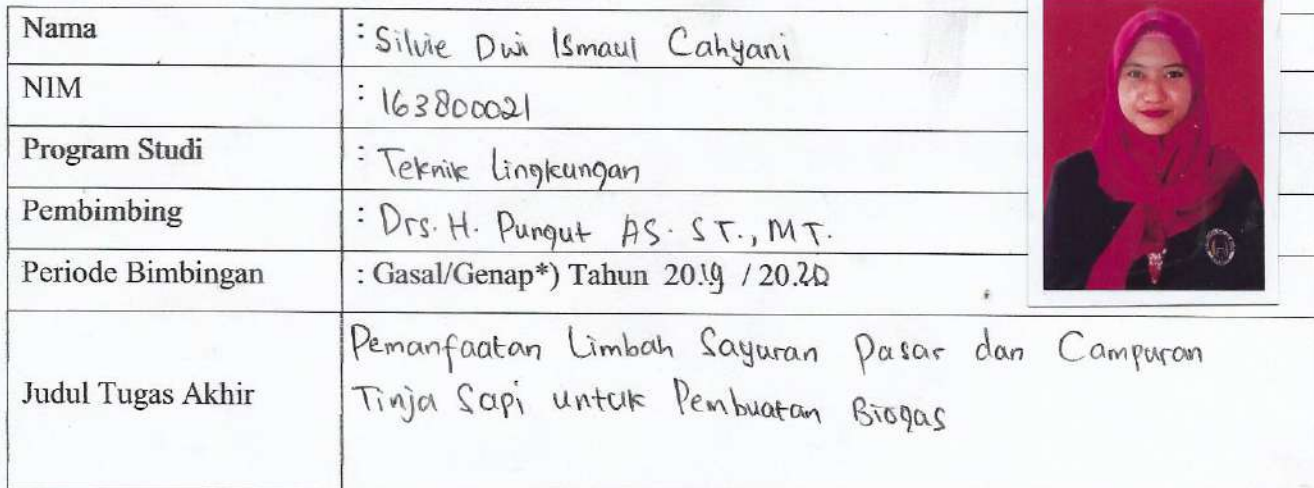 Nama : Silvie Dwi Ismaul Cahyani
NIM : 163800021
Program Studi : Teknik Lingkungan
Pembimbing : Drs. H. Pungut AS. ST., MT.
Periode Bimbingan : Gasal/Genap*) Tahun 20.19 / 20.20
Judul Tugas Akhir Pemanfaatan Limbah Sayuran Pasar dan Campuran
Tinja Sapi untuk Pembuatan Biogas